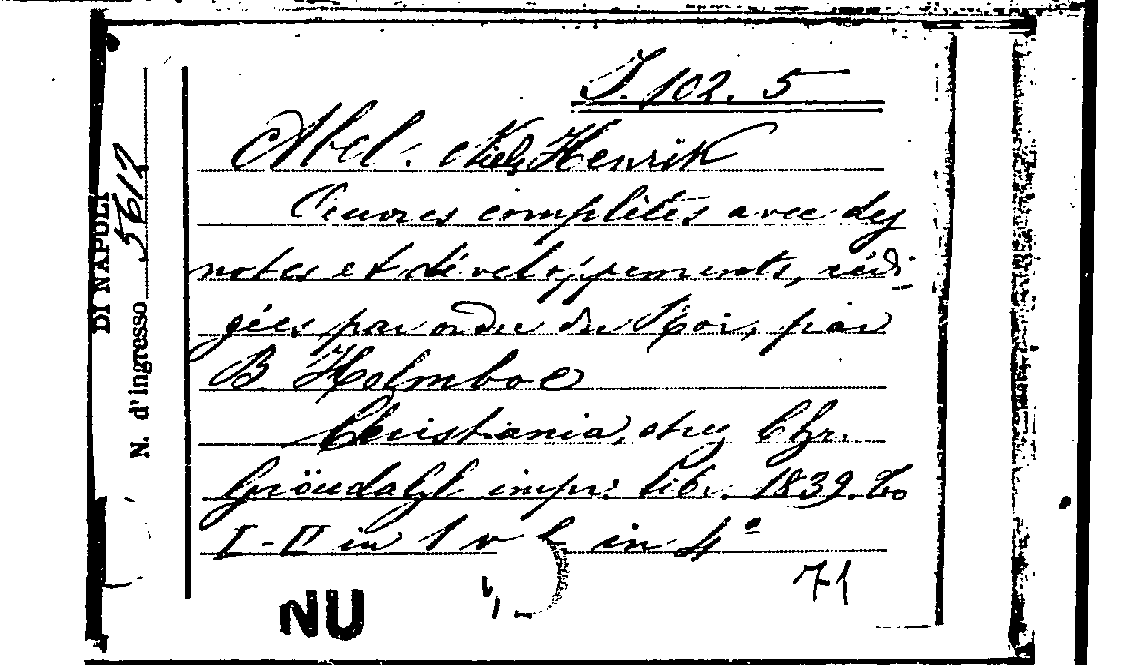 I. 102. 5
Abel. Niels Henrik
Œuvres complètes avec des
notes et développements, rédi-
gées par ordre du Roi, par
B. Holmboe
Christiania, chez Chr.
Gröndahl impr. libr. 1839. To
I-II in 1 v in 4°
71
NU
DI NAPOLI
N. d'ingresso 5612